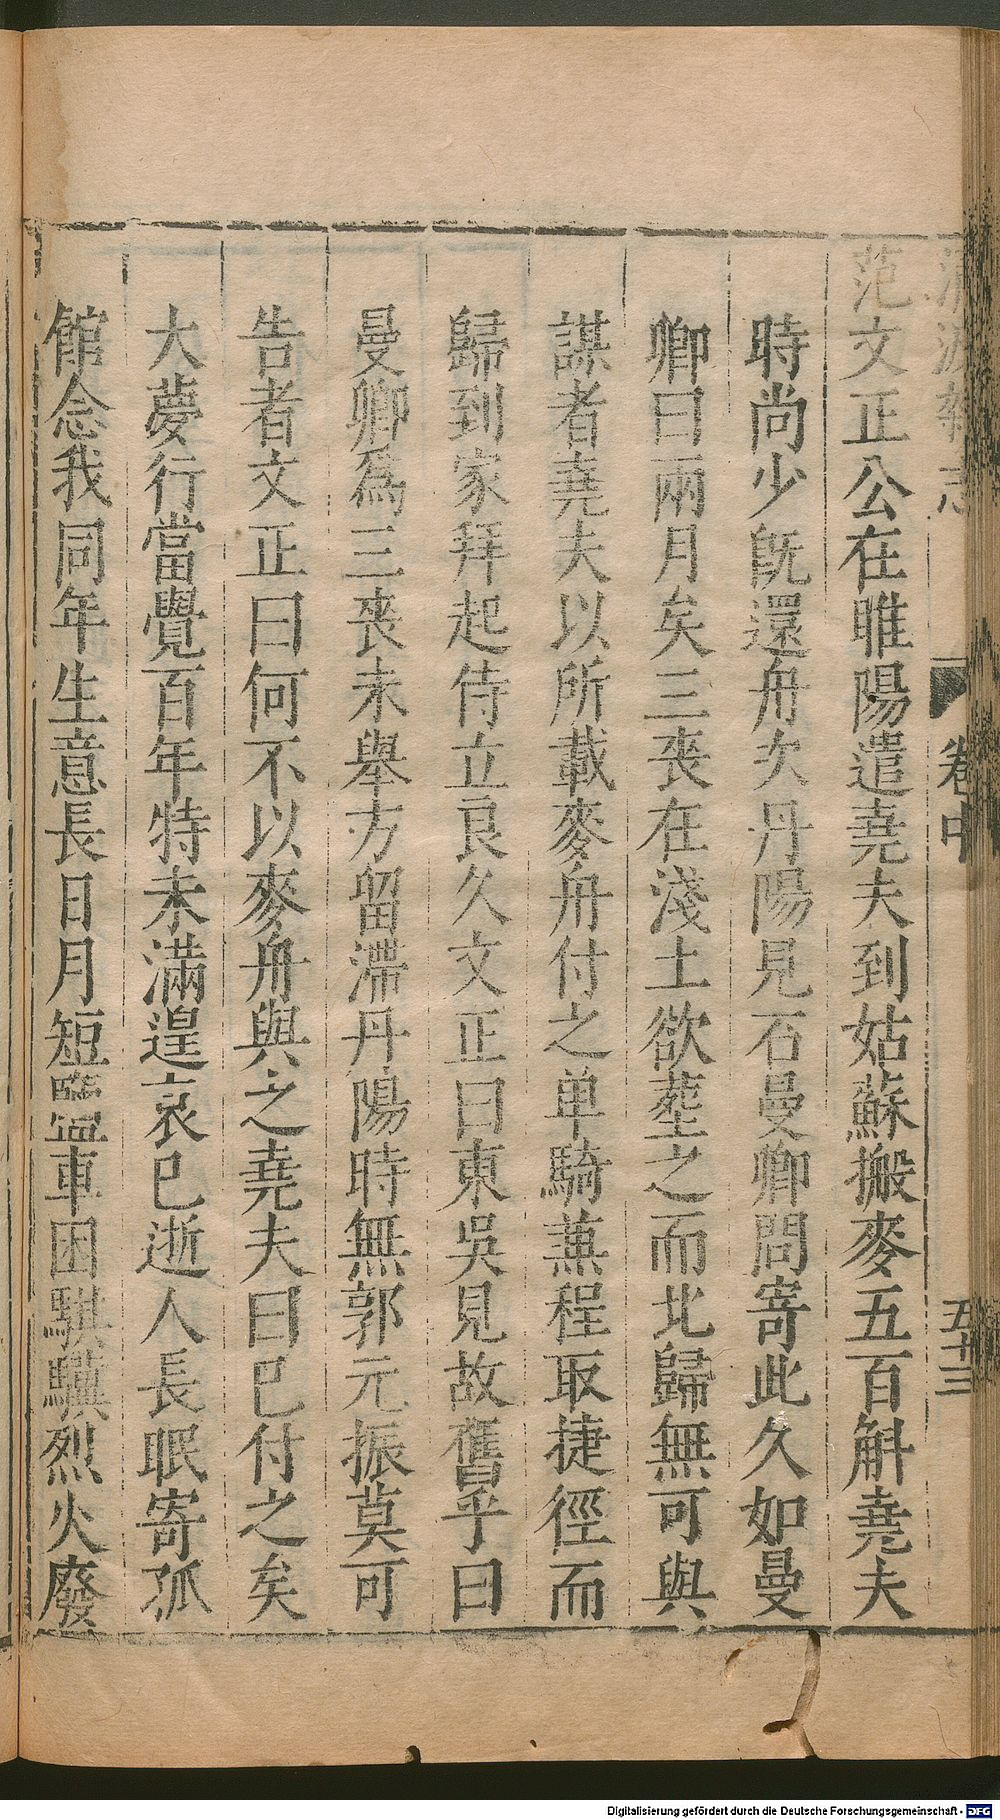 范文正公在睢陽遣堯夫到姑蘇搬麥五百斛堯夫
時尚少旣還舟次丹陽見石曼卿問寄此久如曼
卿曰兩月矣三丧在淺土欲塟之而北歸無可與
謀者堯夫以所載麥舟付之单騎蒹程取捷徑而
歸到家拜起侍立良久文正曰東吳見故舊乎曰
曼卿爲三丧未舉方留滯丹陽時無郭元振莫可
告者文正曰何不以麥舟與之堯夫曰已付之矣
大夢行當覺百年特未滿遑哀已逝人長眠寄孤
館念我同年生意長日月短鹽車困騏驥烈火廢
卷中
五十三
Digitalisierung gefördert durch die Deutsche Forschungsgemeinschaft - DFG